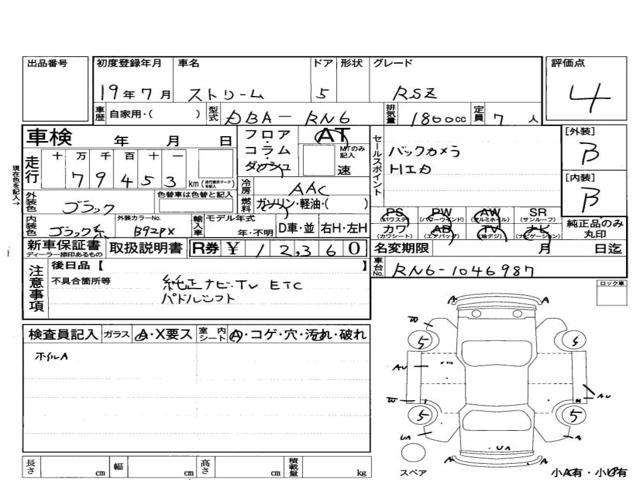 出品番号 初度登録年月 車名 ドア 形状 グレード 評価点
19年7月 ストリーム 5 RSZ 4
車歴 自家用・( ) 型式 DBA-RN6 排気量 1800cc 定員 7人
車検 年 月 日 フロア・コラム・ダッシュ AT MTのみ記入 速
走行 十万千百十一 79453 km
セールスポイント バックカメラ
HID
[外装] B
[内装] B
冷房 AAC
燃料 ガソリン・軽油・( )
外装色 ブラック 色替車は色替と記入
内装色 ブラック系 外装カラーNo. B92PX 輸入車 モデル年式 年・不明 D車・並 右H・左H
PS (パワステ) PW (パワーウインド) AW (アルミホイル) SR (サンルーフ)
カワ (カワシート) AB (エアバック) TV ナビ (ナビゲーション)
純正品のみ丸印
新車保証書 ディーラー捺印あるもの 取扱説明書 R券 ¥12,360
名変期限 月 日迄
車台No. RN6-1046987
注意事項 後日品【 】
不具合箇所等 純正ナビ・TV ETC
パドルシフト
ロック車
検査員記入 ガラス A・X要ス 室内シート A・コゲ・穴・汚れ・破れ
ホイルA
A
W 5 5
AU
AU
W 5 5
UA UA A
A
スペア
小A有・小ヒ有
長さ cm 幅 cm 高さ cm 積載量 kg
現在色を記入→